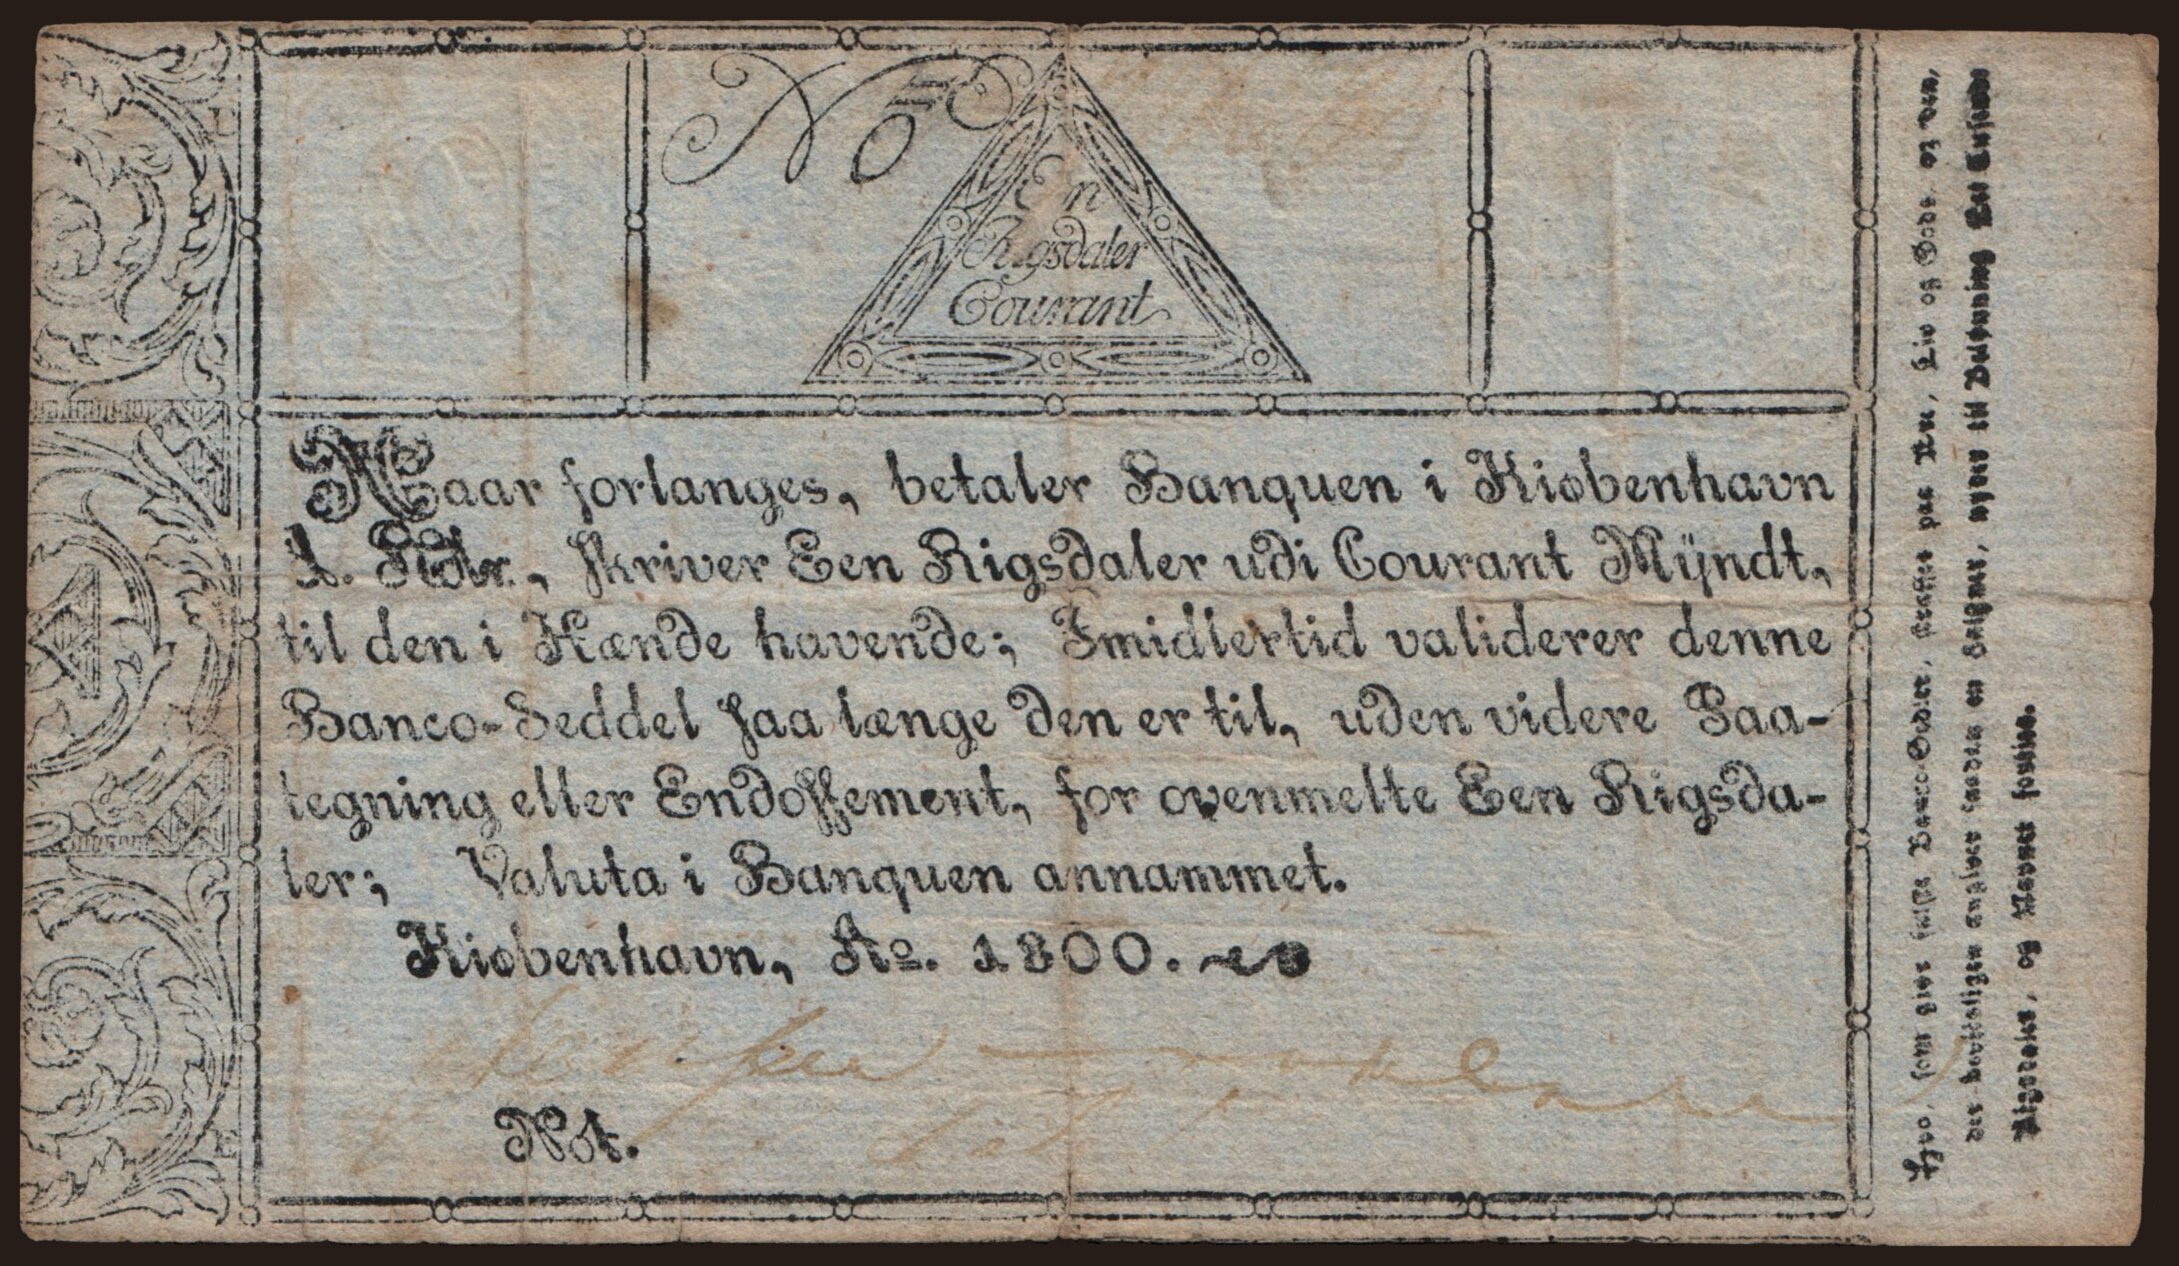 No
En
Rigsdaler
Courant
Naar forlanges, betaler Banquen i Kiøbenhavn
1. Rdlr., skriver Een Rigsdaler udi Courant Mÿndt,
til den i Hænde havende; Imidlertid validerer denne
Banco-Seddel saa længe den er til, uden videre Paa-
tegning eller Endossement, for ovenmelte Een Rigsda-
ler; Valuta i Banquen annammet.
Kiøbenhavn, Ao. 1800.
Not.
Hvo, som giør falske Banco-Sedler, straffes paa Ære, Liv og Gods, og den,
der beviisligen angiver saadan en Falskner, nyder til Belønning Eet Tusinde
Rigsdaler, og Navnet forties.